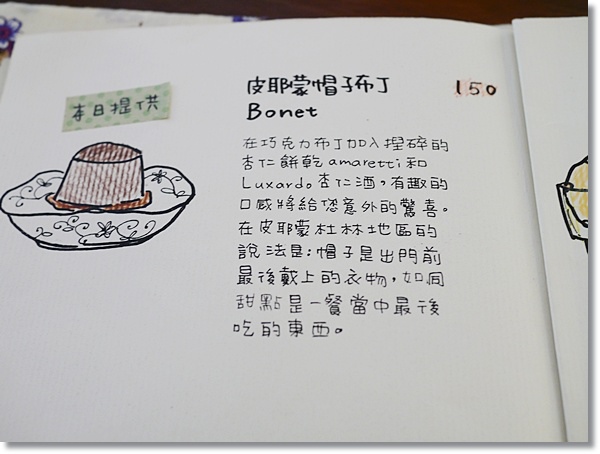 本日提供
皮耶蒙帽子布丁 150
Bonet
在巧克力布丁加入捏碎的
杏仁餅乾amaretti和
Luxardo杏仁酒,有趣的
口感將給您意外的驚喜。
在皮耶蒙杜林地區的
說法是:帽子是出門前
最後戴上的衣物,如同
甜點是一餐當中最後
吃的東西。